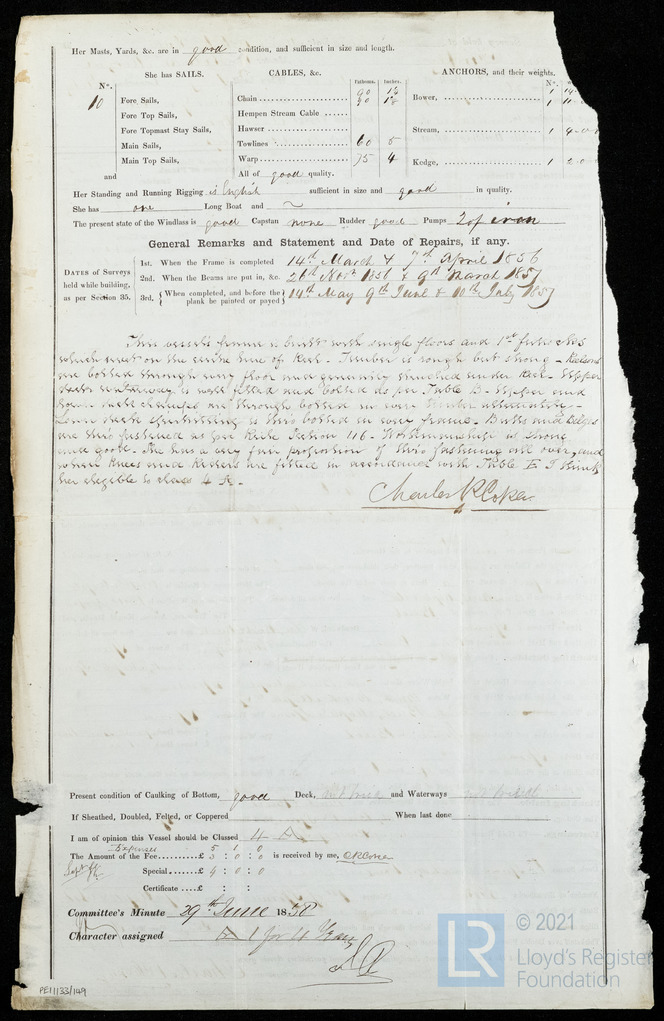 Her Masts, Yards, &c. are in good condition, and sufficient in size and length.
She has SAILS. CABLES, &c. Fathoms. Inches. ANCHORS, and their weights.
N°. N°.
10 Fore Sails, Chain 90 Bower, 1
1
Fore Top Sails, Hempen Stream Cable
Fore Topmast Stay Sails, Hawser Stream, 1
Main Sails, Towlines 60 5
Main Top Sails, Warp 75 4 Kedge, 1
and All of good quality.
Her Standing and Running Rigging is English sufficient in size and good in quality.
She has one Long Boat and
The present state of the Windlass is good Capstan none Rudder good Pumps 2 of iron
General Remarks and Statement and Date of Repairs, if any.
Dates of Surveys held while building, as per Section 35.
1st. When the Frame is completed 14th March & 7th April 1856
2nd. When the Beams are put in, &c. 26th Novr 1856 & 9th March 1857
3rd, When completed, and before the plank be painted or payed 14th May 9th June & 10th July 1857
This vessels frame is built with single floors and 1st futtocks
which meet on the centre line of Keel - Timber is rough but strong - Keelsons
are bolted through every floor and generally clenched under Keel - Upper
deck is well fitted and bolted as per Table B - Upper and
are through bolted in every timber alternately -
is thro bolted in every frame - Butts and Bilges
are thro fastened as per Rule Section 46 - Workmanship is strong
and good - She has a very fair proportion of thro fastening all over, and
Knees and Riders are fitted in accordance with Table E. I think
her elegible to class 4 A -
Charles R Coker
Present condition of Caulking of Bottom, good Deck, and Waterways
If Sheathed, Doubled, Felted, or Coppered When last done
I am of opinion this Vessel should be Classed 4 A
Expenses 5 1 0
The Amount of the Fee £ 5 : 0 : 0 is received by me, CRCoker
Special £ 9 : 0 : 0
Certificate £ : :
Committee's Minute 29th June 1858
Character assigned A 1 for 4 Years
PE11133/149
LR
© 2021
Lloyd's Register
Foundation